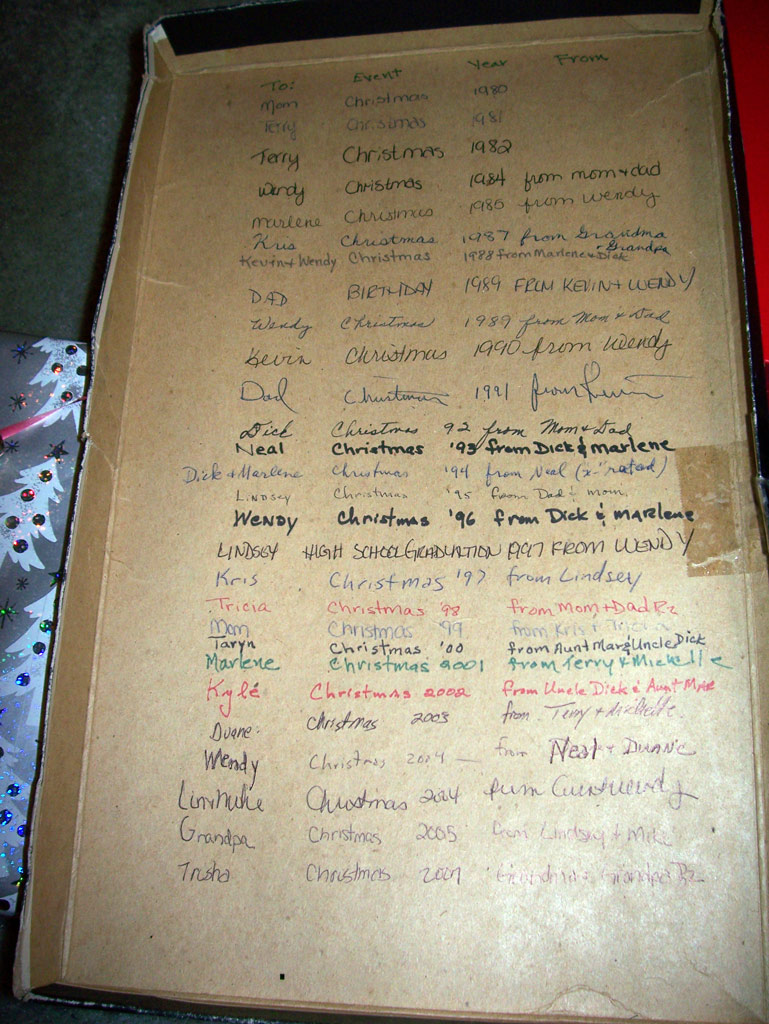 To: Event Year From
Mom Christmas 1980
Terry Christmas 1981
Terry Christmas 1982
Wendy Christmas 1984 from mom & dad
Marlene Christmas 1985 from Wendy
Kris Christmas 1987 from Grandma & Grandpa
Kevin & Wendy Christmas 1988 from Marlene & Dick
DAD BIRTHDAY 1989 FROM KEVIN & WENDY
Wendy Christmas 1989 from Mom & Dad
Kevin Christmas 1990 from Wendy
Dad Christmas 1991 from
Dick Christmas 92 from Mom & Dad
Neal Christmas '93 from Dick & Marlene
Dick & Marlene Christmas '94 from Neal (x-'rated)
LINDSEY Christmas '95 from Dad & mom
WENDY Christmas '96 from Dick & Marlene
LINDSEY HIGH SCHOOL GRADUATION 1997 FROM WENDY
Kris Christmas '97 from Lindsey
Tricia Christmas '98 from Mom + Dad Rz
Mom Christmas '99 from Kris & Tricia
Taryn Christmas '00 from Aunt Mar & Uncle Dick
Marlene Christmas 2001 from Terry & Michelle
Kylé Christmas 2002 from Uncle Dick & Aunt Mar
Duane Christmas 2003 from Terry & Michelle
Wendy Christmas 2004 — from Neal & Duane
Christmas 2004 from Wendy
Grandpa Christmas 2005 from Lindsey & Mike
Trisha Christmas Grandma & Grandpa Rz